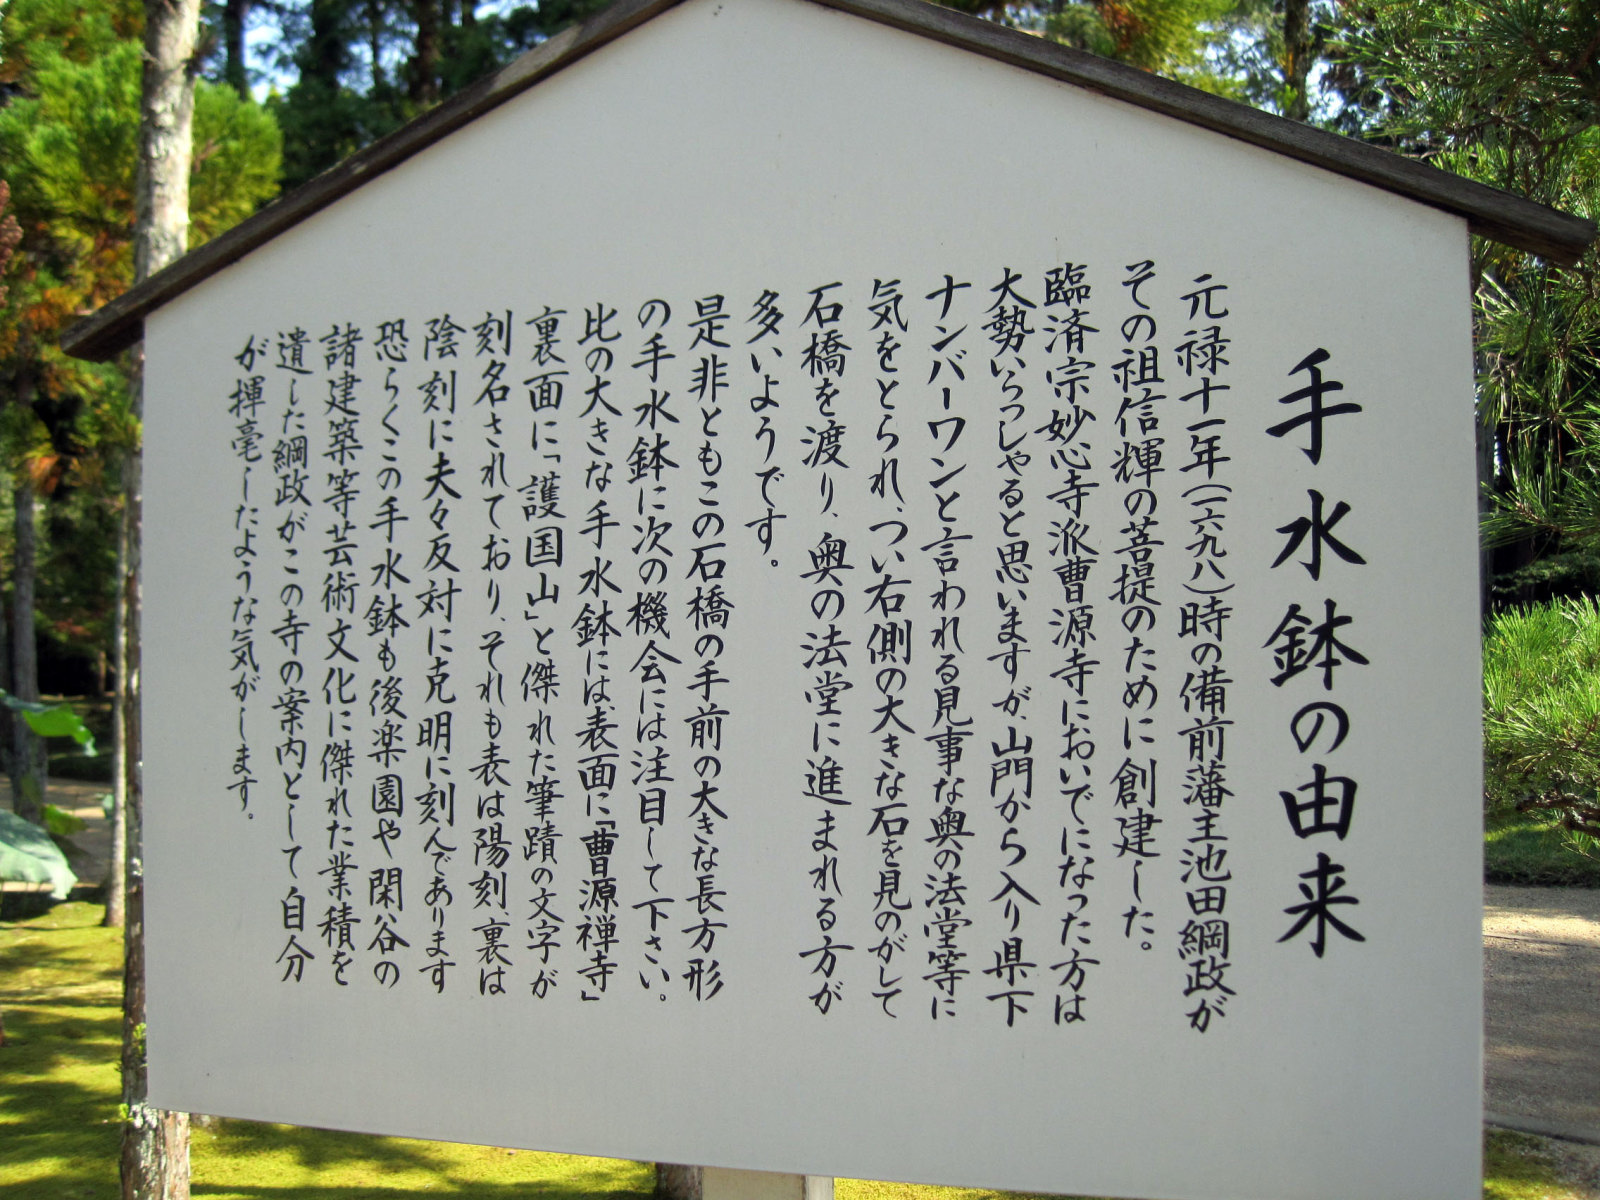 手水鉢の由来
元禄十一年(一六九八)時の備前藩主池田綱政が
その祖信輝の菩提のために創建した。
臨済宗妙心寺派曹源寺においでになった方は
大勢いらっしゃると思いますが、山門から入り県下
ナンバーワンと言われる見事な奥の法堂等に
気をとられ、つい右側の大きな石を見のがして
石橋を渡り、奥の法堂に進まれる方が
多いようです。
是非ともこの石橋の手前の大きな長方形
の手水鉢に次の機会には注目して下さい。
比の大きな手水鉢には、表面に「曹源禅寺」
裏面に「護国山」と傑れた筆蹟の文字が
刻名されており、それも表は陽刻、裏は
陰刻に夫々反対に克明に刻んであります
恐らくこの手水鉢も後楽園や閑谷の
諸建築等芸術文化に傑れた業積を
遺した綱政がこの寺の案内として自分
が揮毫したような気がします。